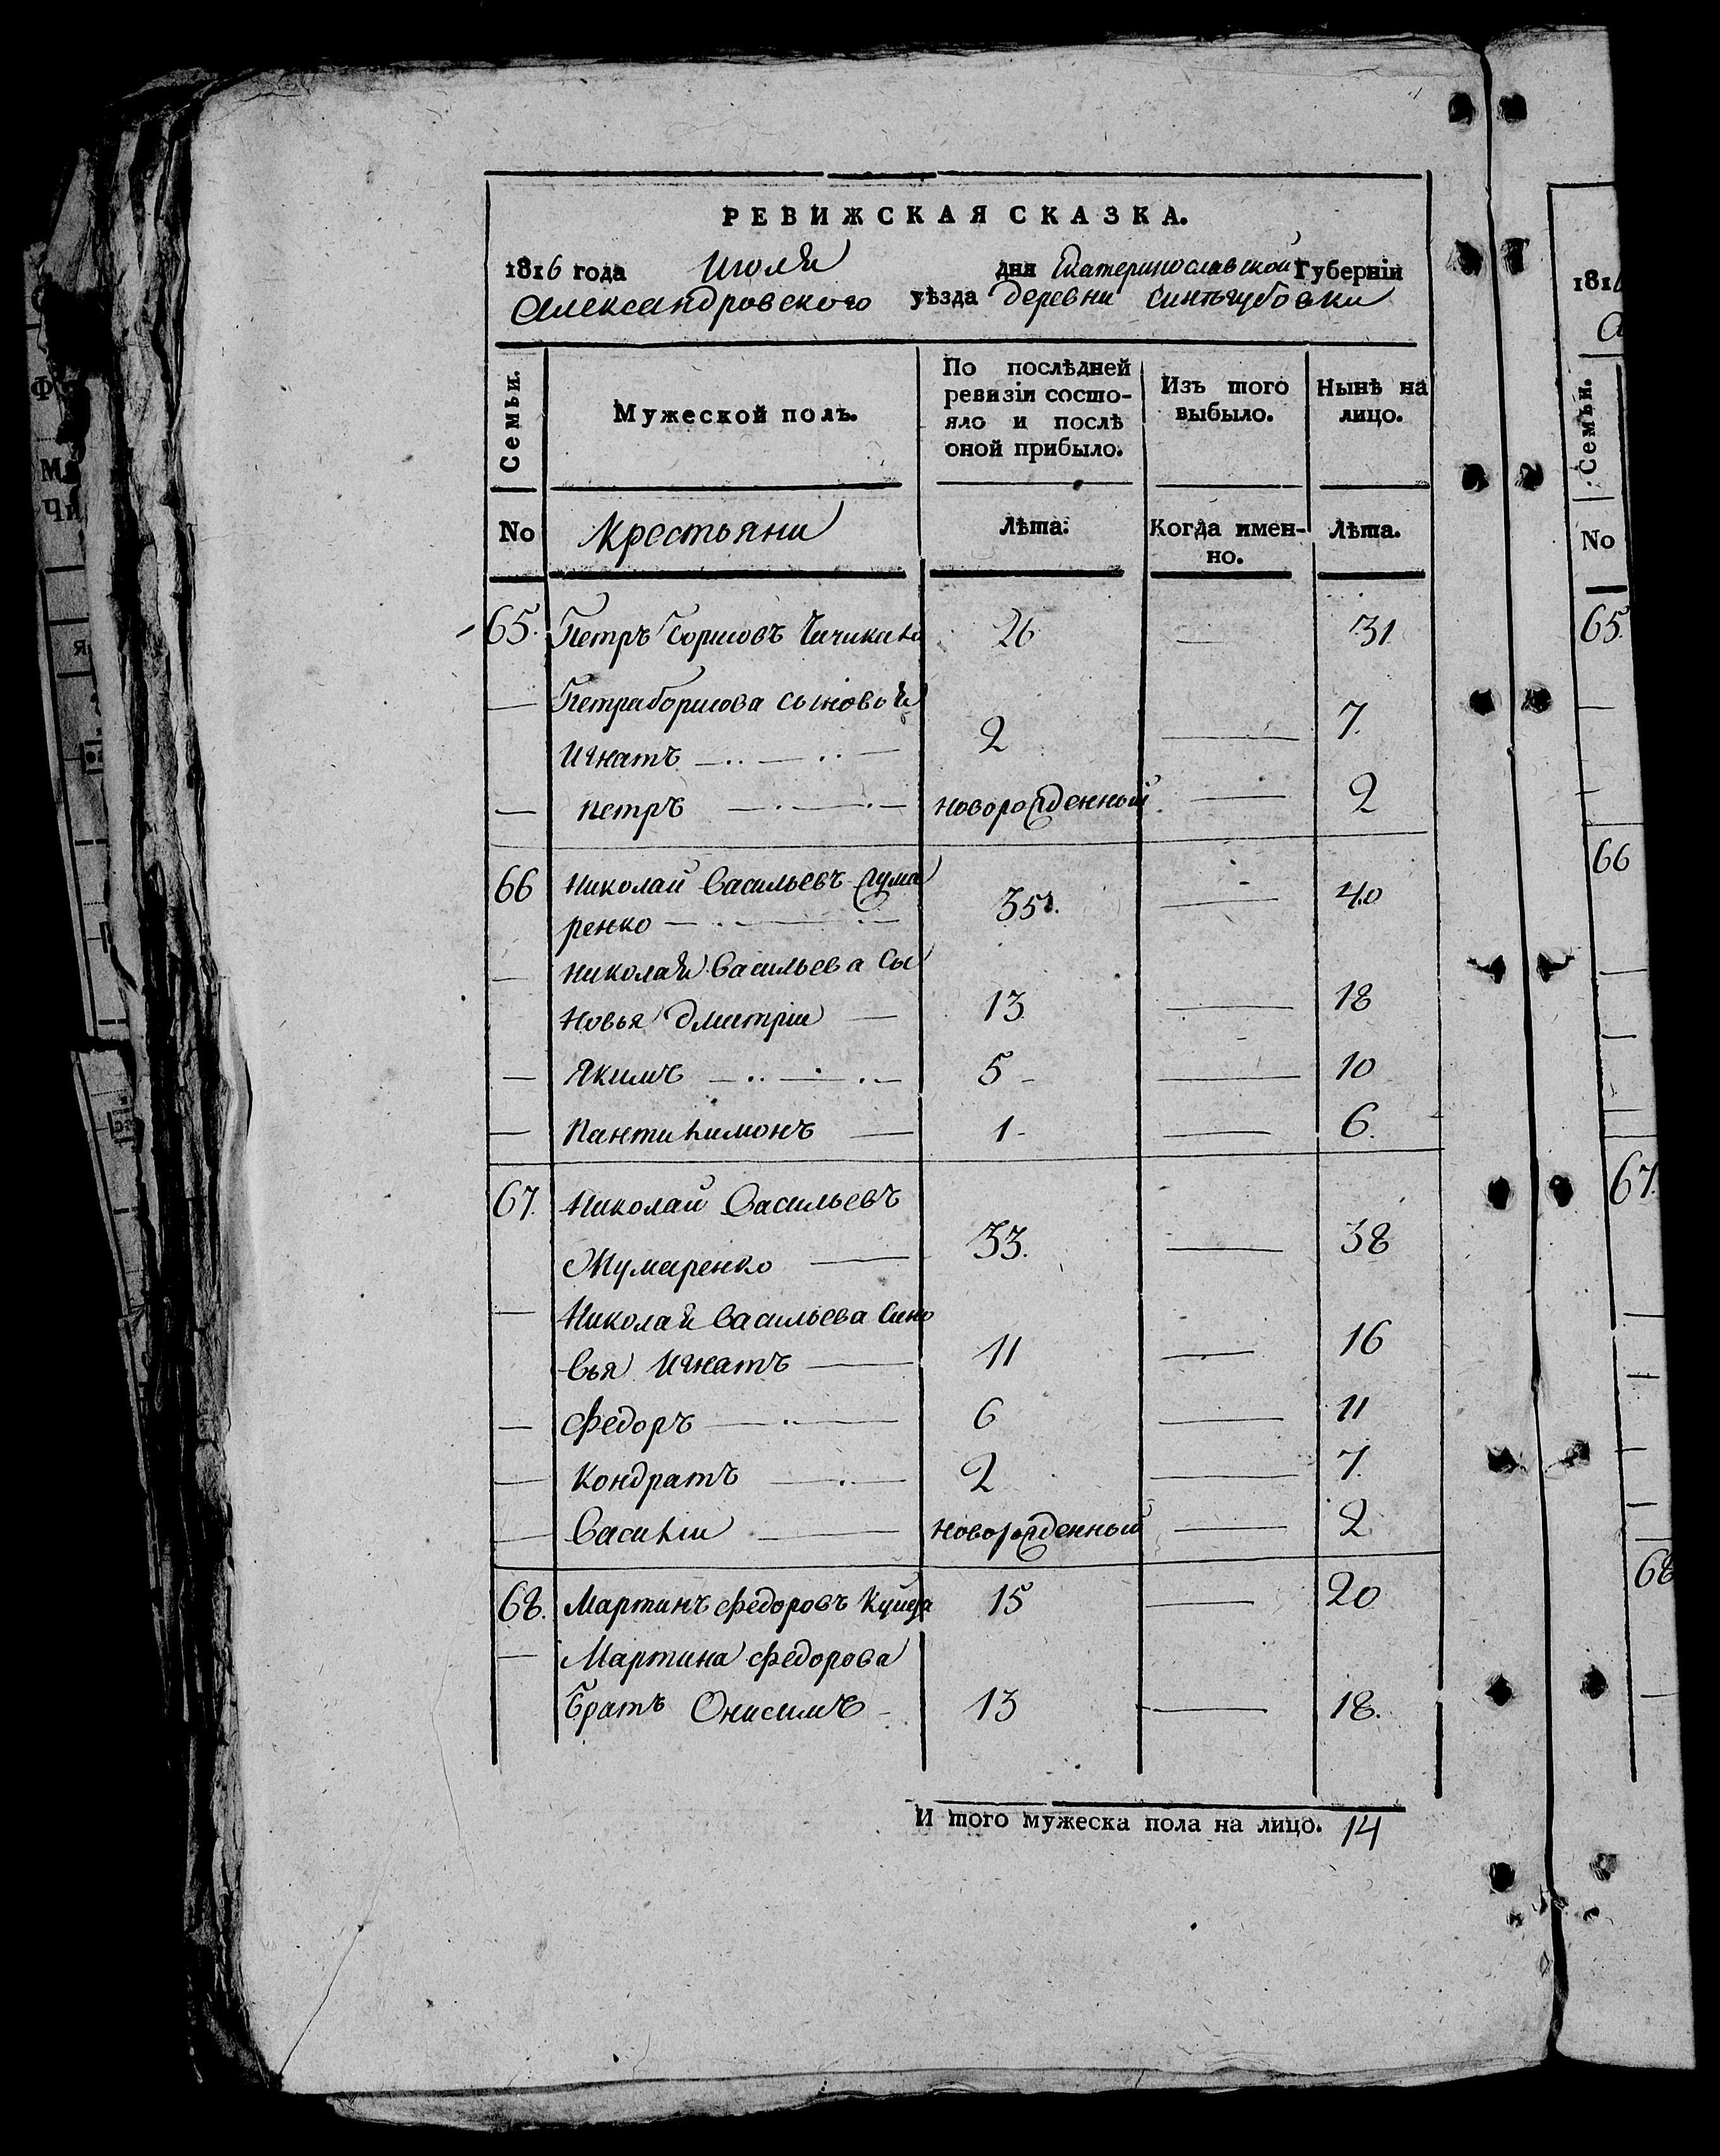 РЕВИЖСКАЯ СКАЗКА.
1816 года Июля дня Екатеринославской Губерніи
Александровского уѣзда деревни Синѣгубовки
Семьи.
Мужеской полъ.
По послѣдней ревизіи состо-
яло и послѣ
оной прибыло.
Изъ того
выбыло.
Нынѣ на
лицо.
No
Крестьяни
Лѣта:
Когда имен-
но.
Лѣта.
65. Петръ Борисовъ 26 — 31
— Петра Борисова сыновья
Игнатъ 2 — 7.
— Петръ новорожденный — 2
66 Николай Васильевъ
ренко 35. — 40
— Николая Васильева Сы
новья Дмитрій — 13 — 18
— Якимъ 5 — 10
— Пантилимонъ — 1 — 6.
67. Николай Васильевъ
Шумаренко — 33. — 38
— Николая Васильева Сино
вья Игнатъ — 11 — 16
— Федоръ 6 — 11
— Кондратъ 2 — 7.
— Василій — новорожденный — 2
68. Мартинъ Федоровъ 15 — 20
— Мартина Федорова
Братъ Онисимъ 13 — 18.
И того мужеска пола на лицо. 14
181
Семьи.
No
65.
66
67.
68